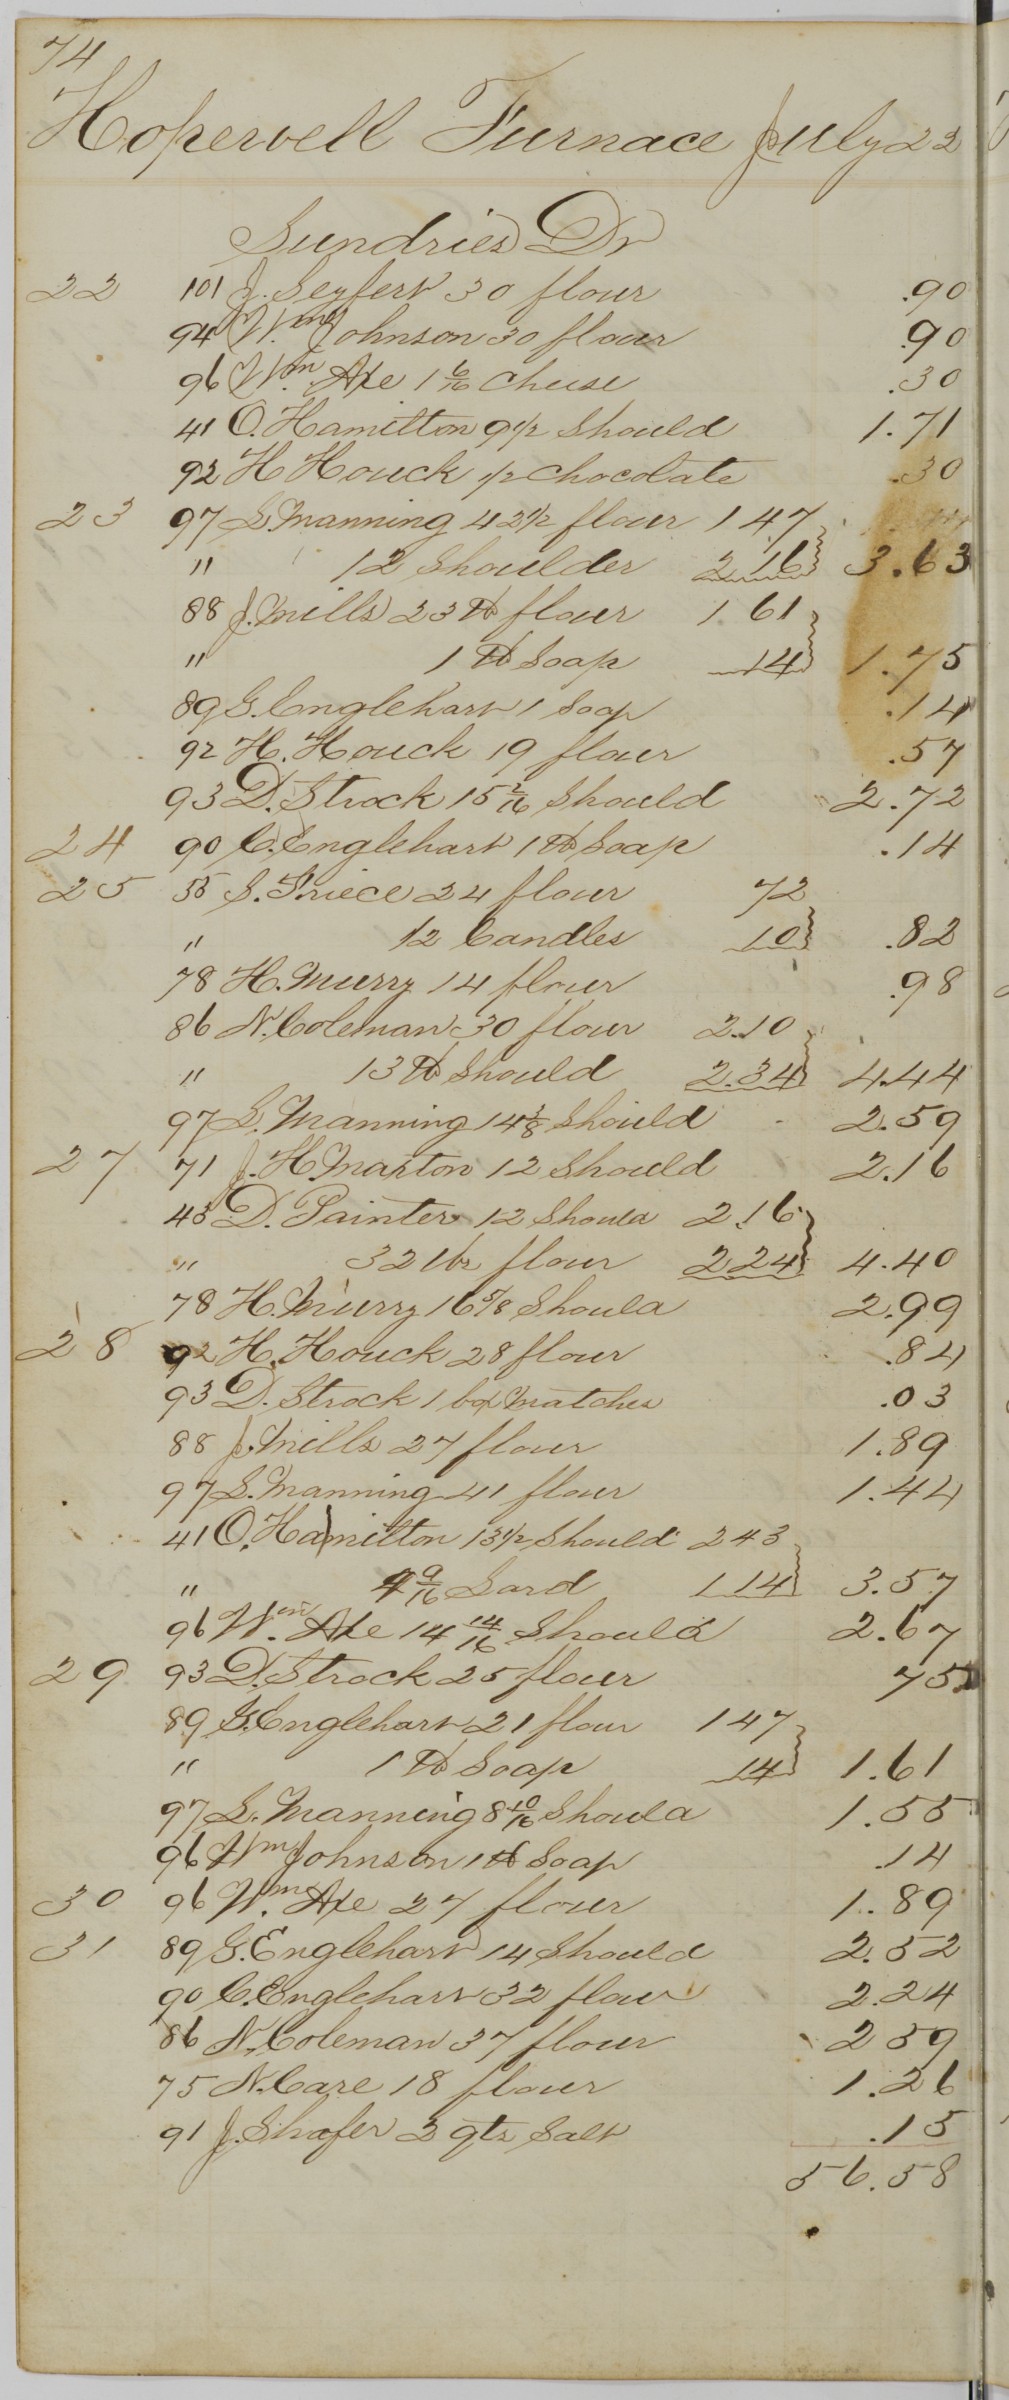 74
Hopewell Furnace July 22
Sundries Dr
22 101 J. Seyfert 30 flour .90
94 Wm Johnson 30 flour .90
96 Wm Axe 1 6/16 Cheese .30
41 O. Hamilton 9 1/2 Should 1.71
92 H Houck 1/2 Chocolate .30
23 97 L. Manning 42 1/2 flour 1 47
" 12 Shoulder 2.16 3.63
88 J. Mills 23 lb flour 1.61
" 1 lb Soap 14 1.75
89 G. Englehart 1 Soap .14
92 H. Houck 19 flour .57
93 D. Strock 15 2/16 Should 2.72
24 90 C. Englehart 1 lb Soap .14
25 55 S. Friece 24 flour 72
" 12 Candles 10 .82
78 H. Murry 14 flour .98
86 N. Coleman 30 flour 2.10
" 13 lb Should 2.34 4.44
97 L. Manning 14 3/8 Should 2.59
27 71 J. H. Marton 12 Should 2.16
43 D. Painter 12 Should 2.16
" 32 lbs flour 2.24 4.40
78 H. Murry 16 5/8 Should 2.99
28 92 H. Houck 28 flour .84
93 D. Strock 1 box Matches .03
88 J. Mills 27 flour 1.89
97 L. Manning 41 flour 1.44
41 O. Hamilton 13 1/2 Should 2 43
" 9/16 Lard 1 14 3.57
96 Wm. Axe 14 14/16 Should 2.67
29 93 D. Strock 25 flour 75
89 G. Englehart 21 flour 1 47
" 1 lb Soap 14 1.61
97 L. Manning 8 10/16 Should 1.55
96 Wm Johnson 1 lb Soap .14
30 96 Wm. Axe 27 flour 1.89
31 89 G. Englehart 14 Should 2.52
90 C. Englehart 32 flour 2.24
86 N. Coleman 37 flour 2 59
75 N. Care 18 flour 1.26
91 J. Shafer 3 qts Salt .15
56.58